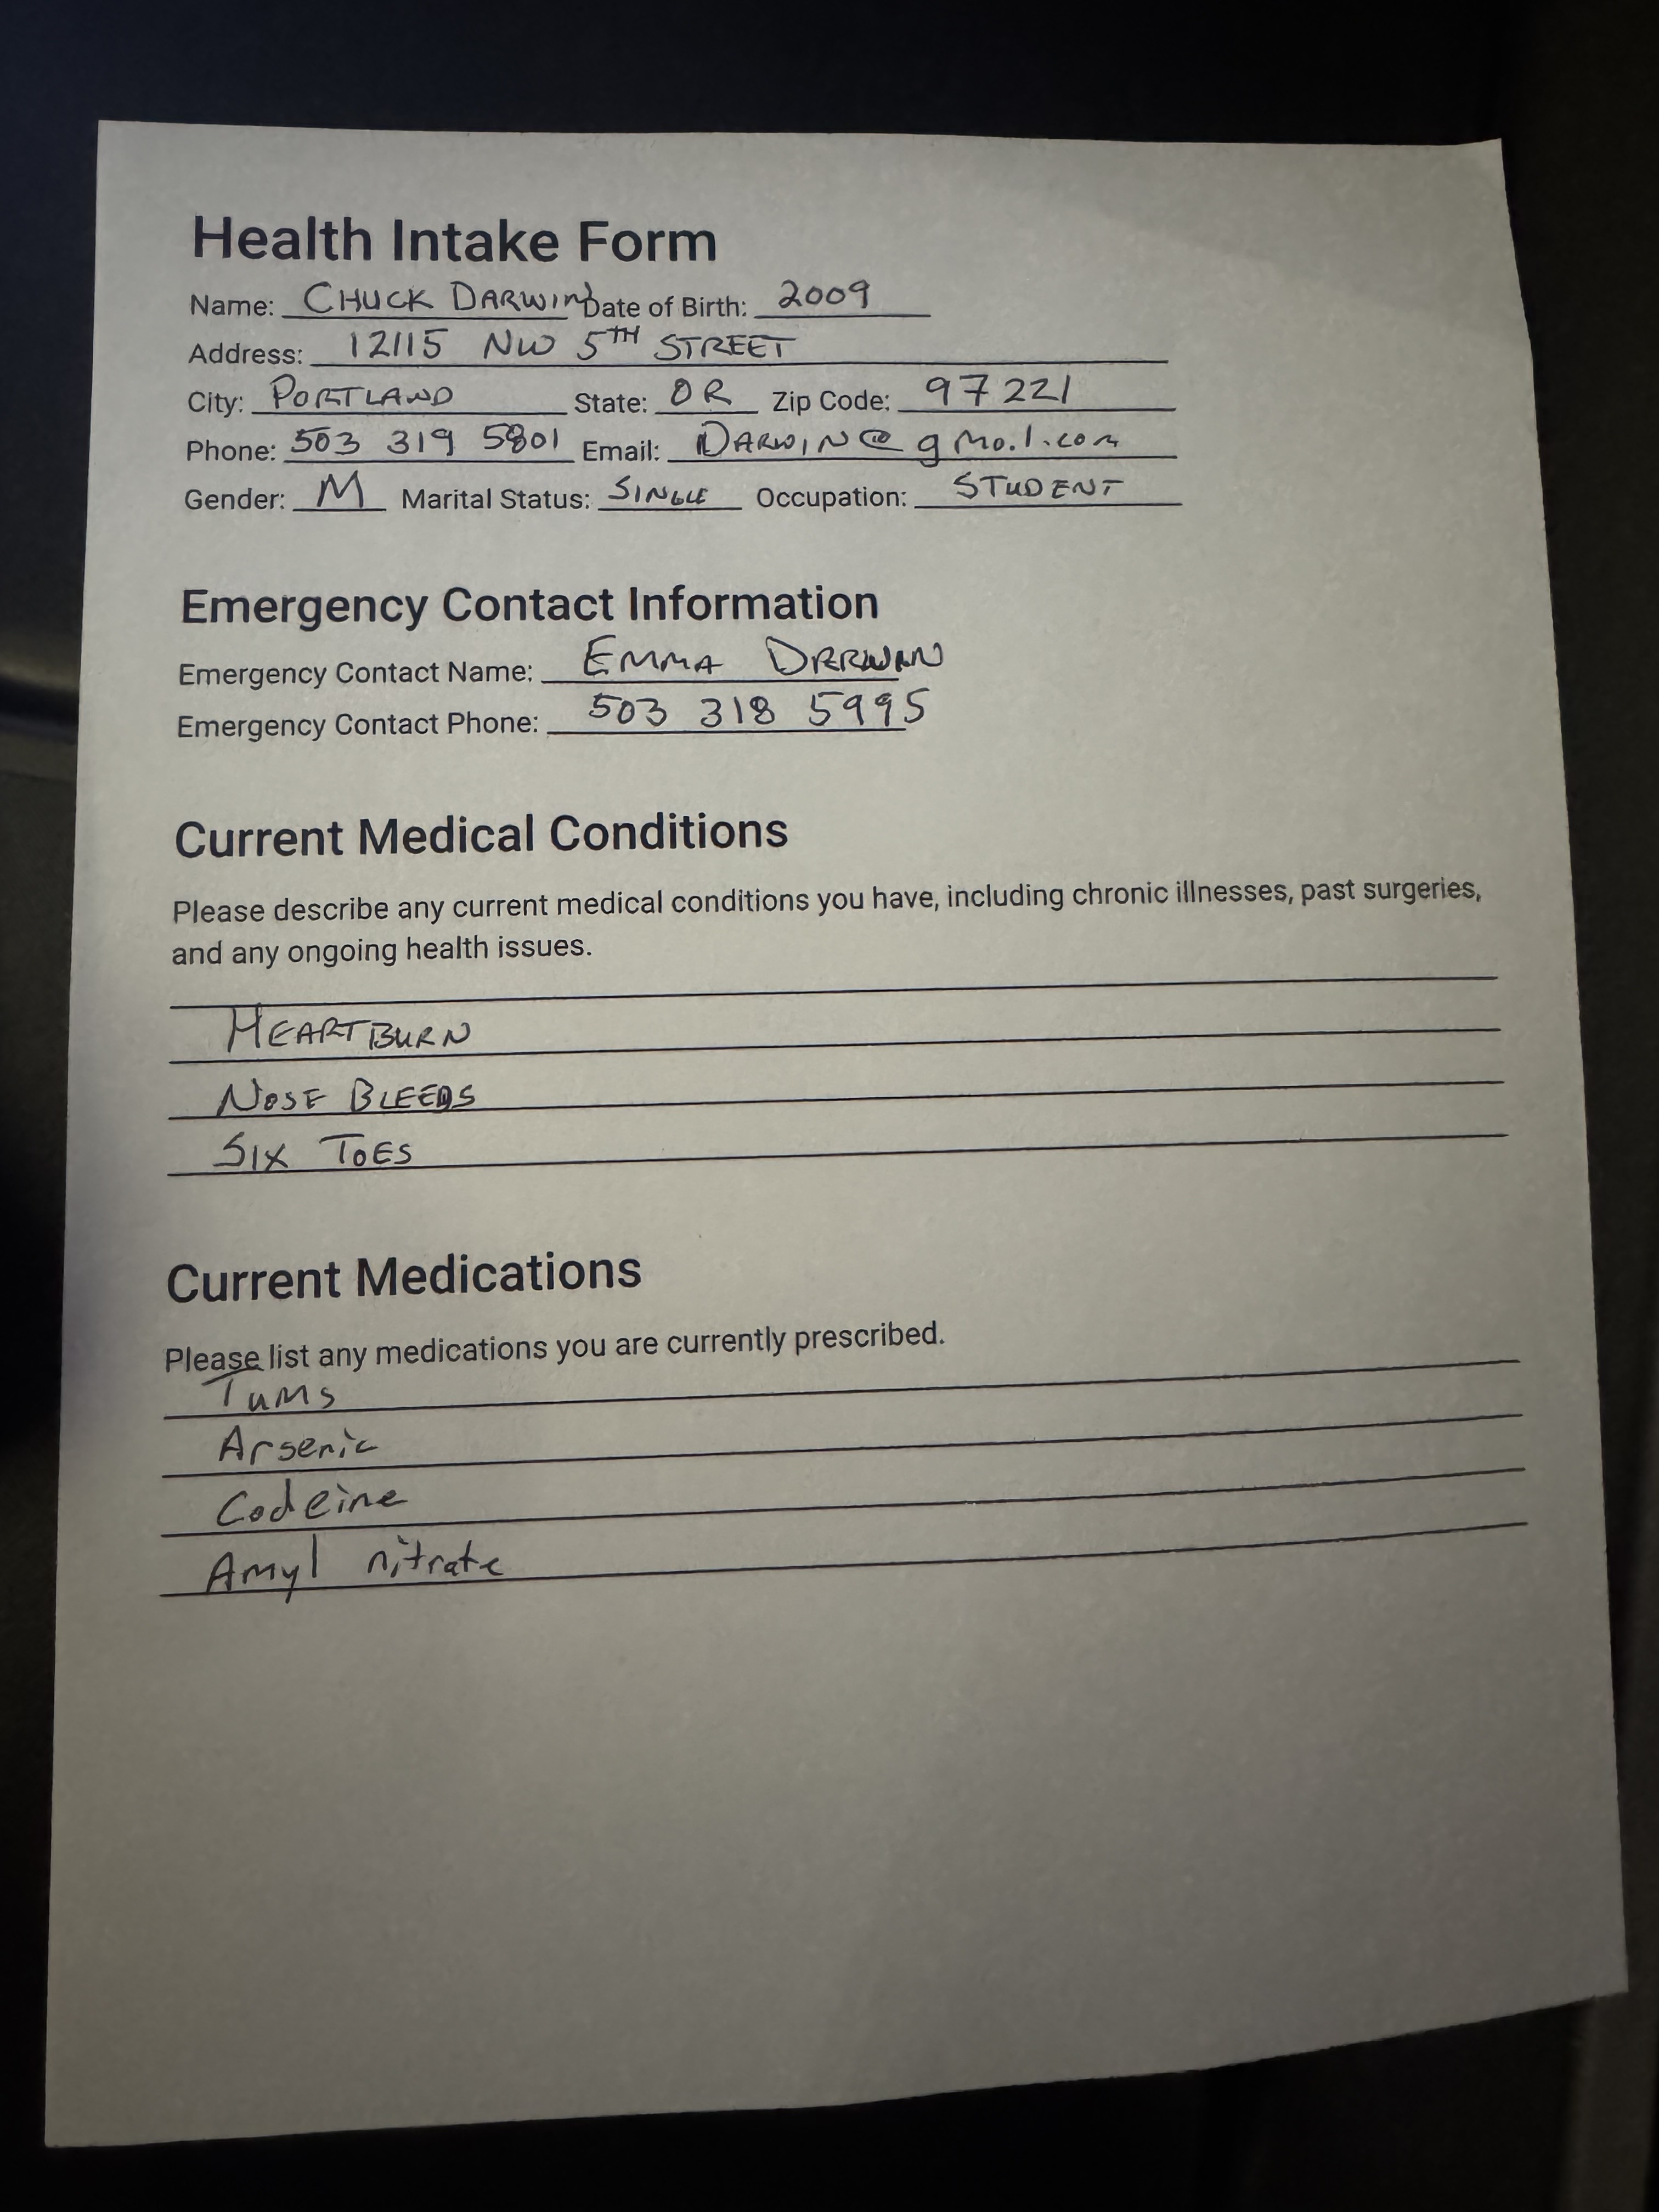 Health Intake Form
Name: CHUCK DARWIN Date of Birth: 2009
Address: 12115 NW 5TH STREET
City: PORTLAND State: OR Zip Code: 97221
Phone: 503 319 5801 Email: DARWIN@gmail.com
Gender: M Marital Status: SINGLE Occupation: STUDENT
Emergency Contact Information
Emergency Contact Name: EMMA DARWIN
Emergency Contact Phone: 503 318 5995
Current Medical Conditions
Please describe any current medical conditions you have, including chronic illnesses, past surgeries,
and any ongoing health issues.
HEARTBURN
NOSE BLEEDS
SIX TOES
Current Medications
Please list any medications you are currently prescribed.
Tums
Arsenic
Codeine
Amyl nitrate